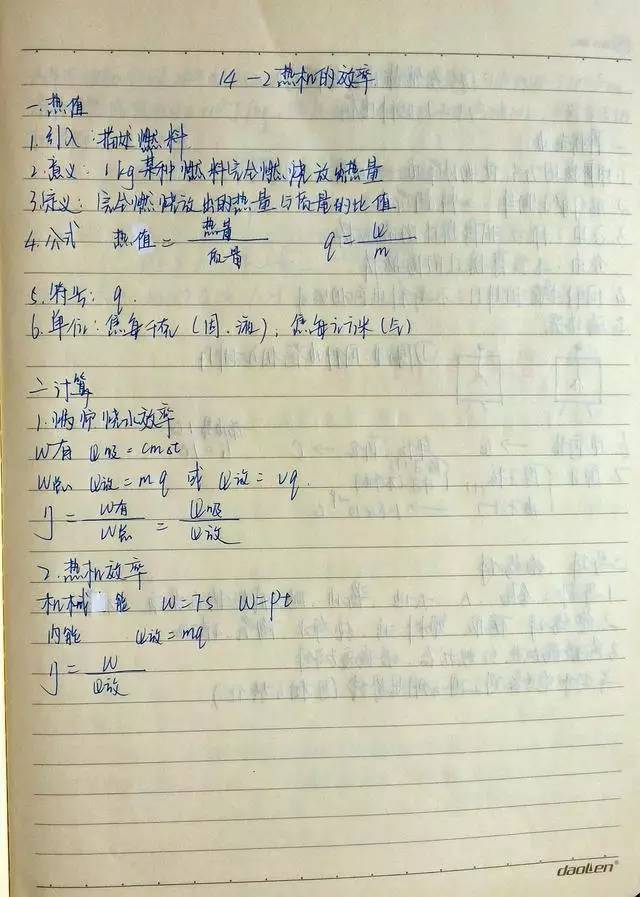 14-2 热机的效率
一.热值
1.引入:描述燃料
2.意义:1kg某种燃料完全燃烧放出热量
3.定义:完全燃烧放出的热量与质量的比值
4.公式 热值=热量/质量 q=Q/m
5.符号:q.
6.单位:焦每千克(固.液),焦每立方米(气)
二.计算
1.炉烧水效率
W有 Q吸=cmΔt
W总 Q放=mq 或 Q放=Vq.
η=W有/W总=Q吸/Q放
2.热机效率
机械能 W=Fs W=Pt
内能 Q放=mq
η=W/Q放
daolien®